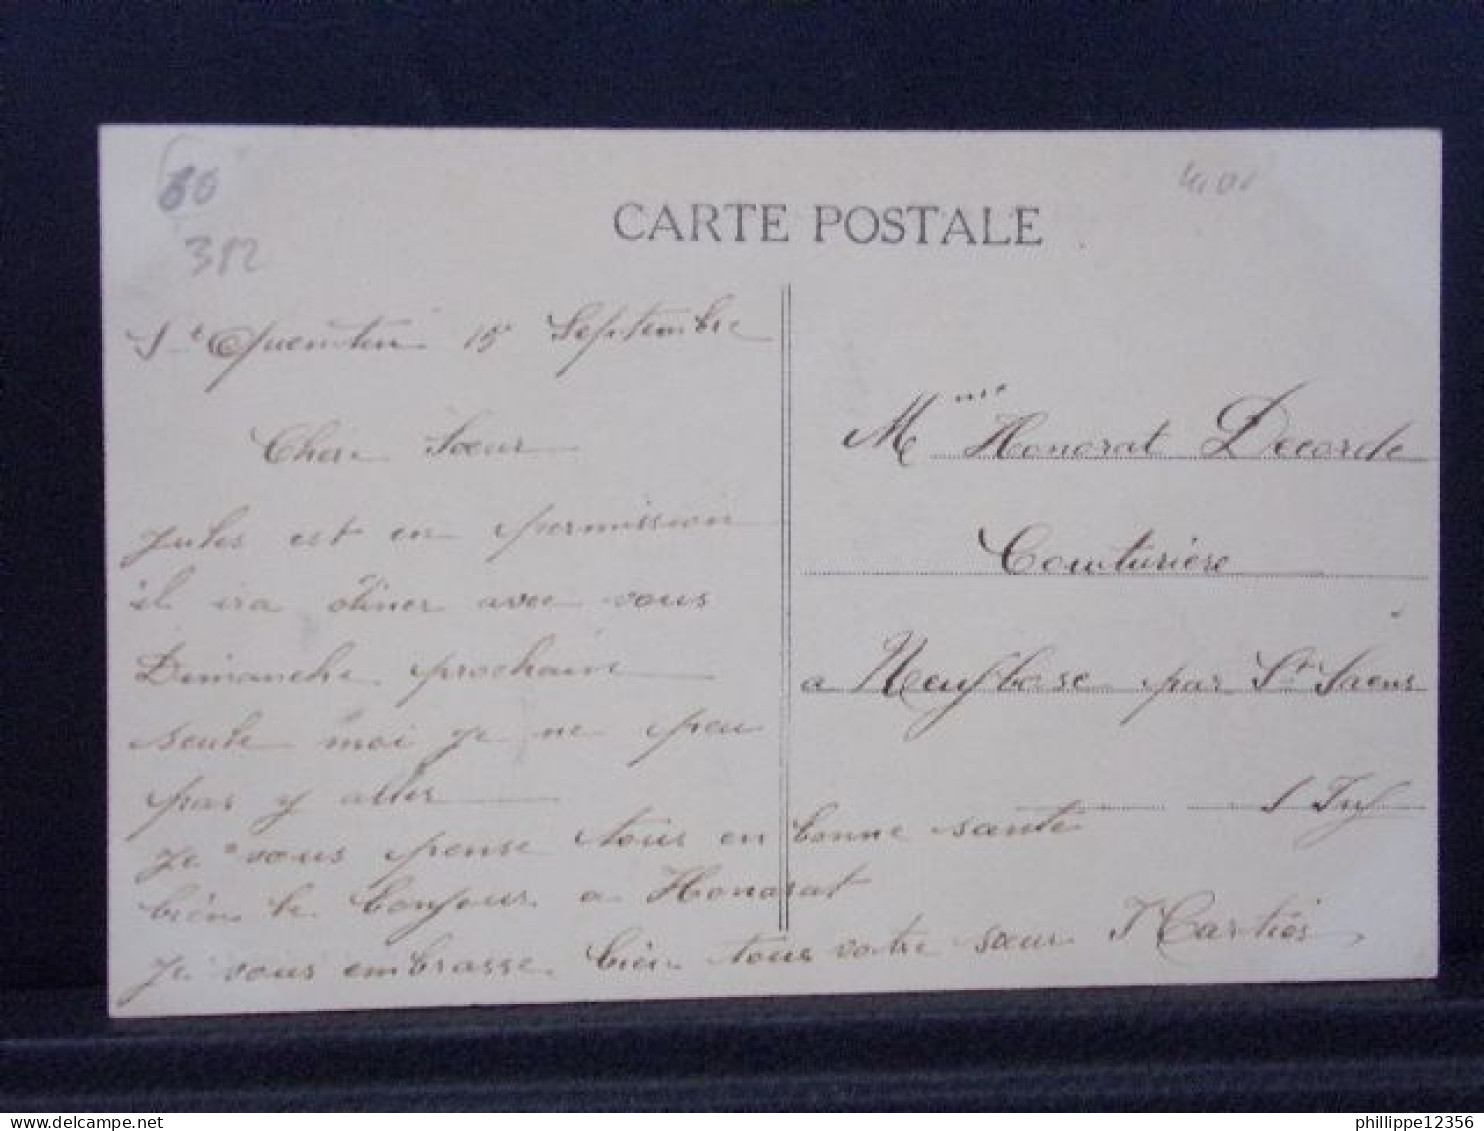 60
382
4,00
CARTE POSTALE
St Quentin 15 Septembre
Chere Sœur
Jules est en permission
il ira diner avec vous
Dimanche prochain
seule moi je ne peu
pas y aller
je vous pense tous en bonne santé
bien le bonjour a Honorat
je vous embrasse bien tous votre sœur
Mme Honorat Decorde
Couturière
a Neufbosc par St Saens
S Inf
philippe12356